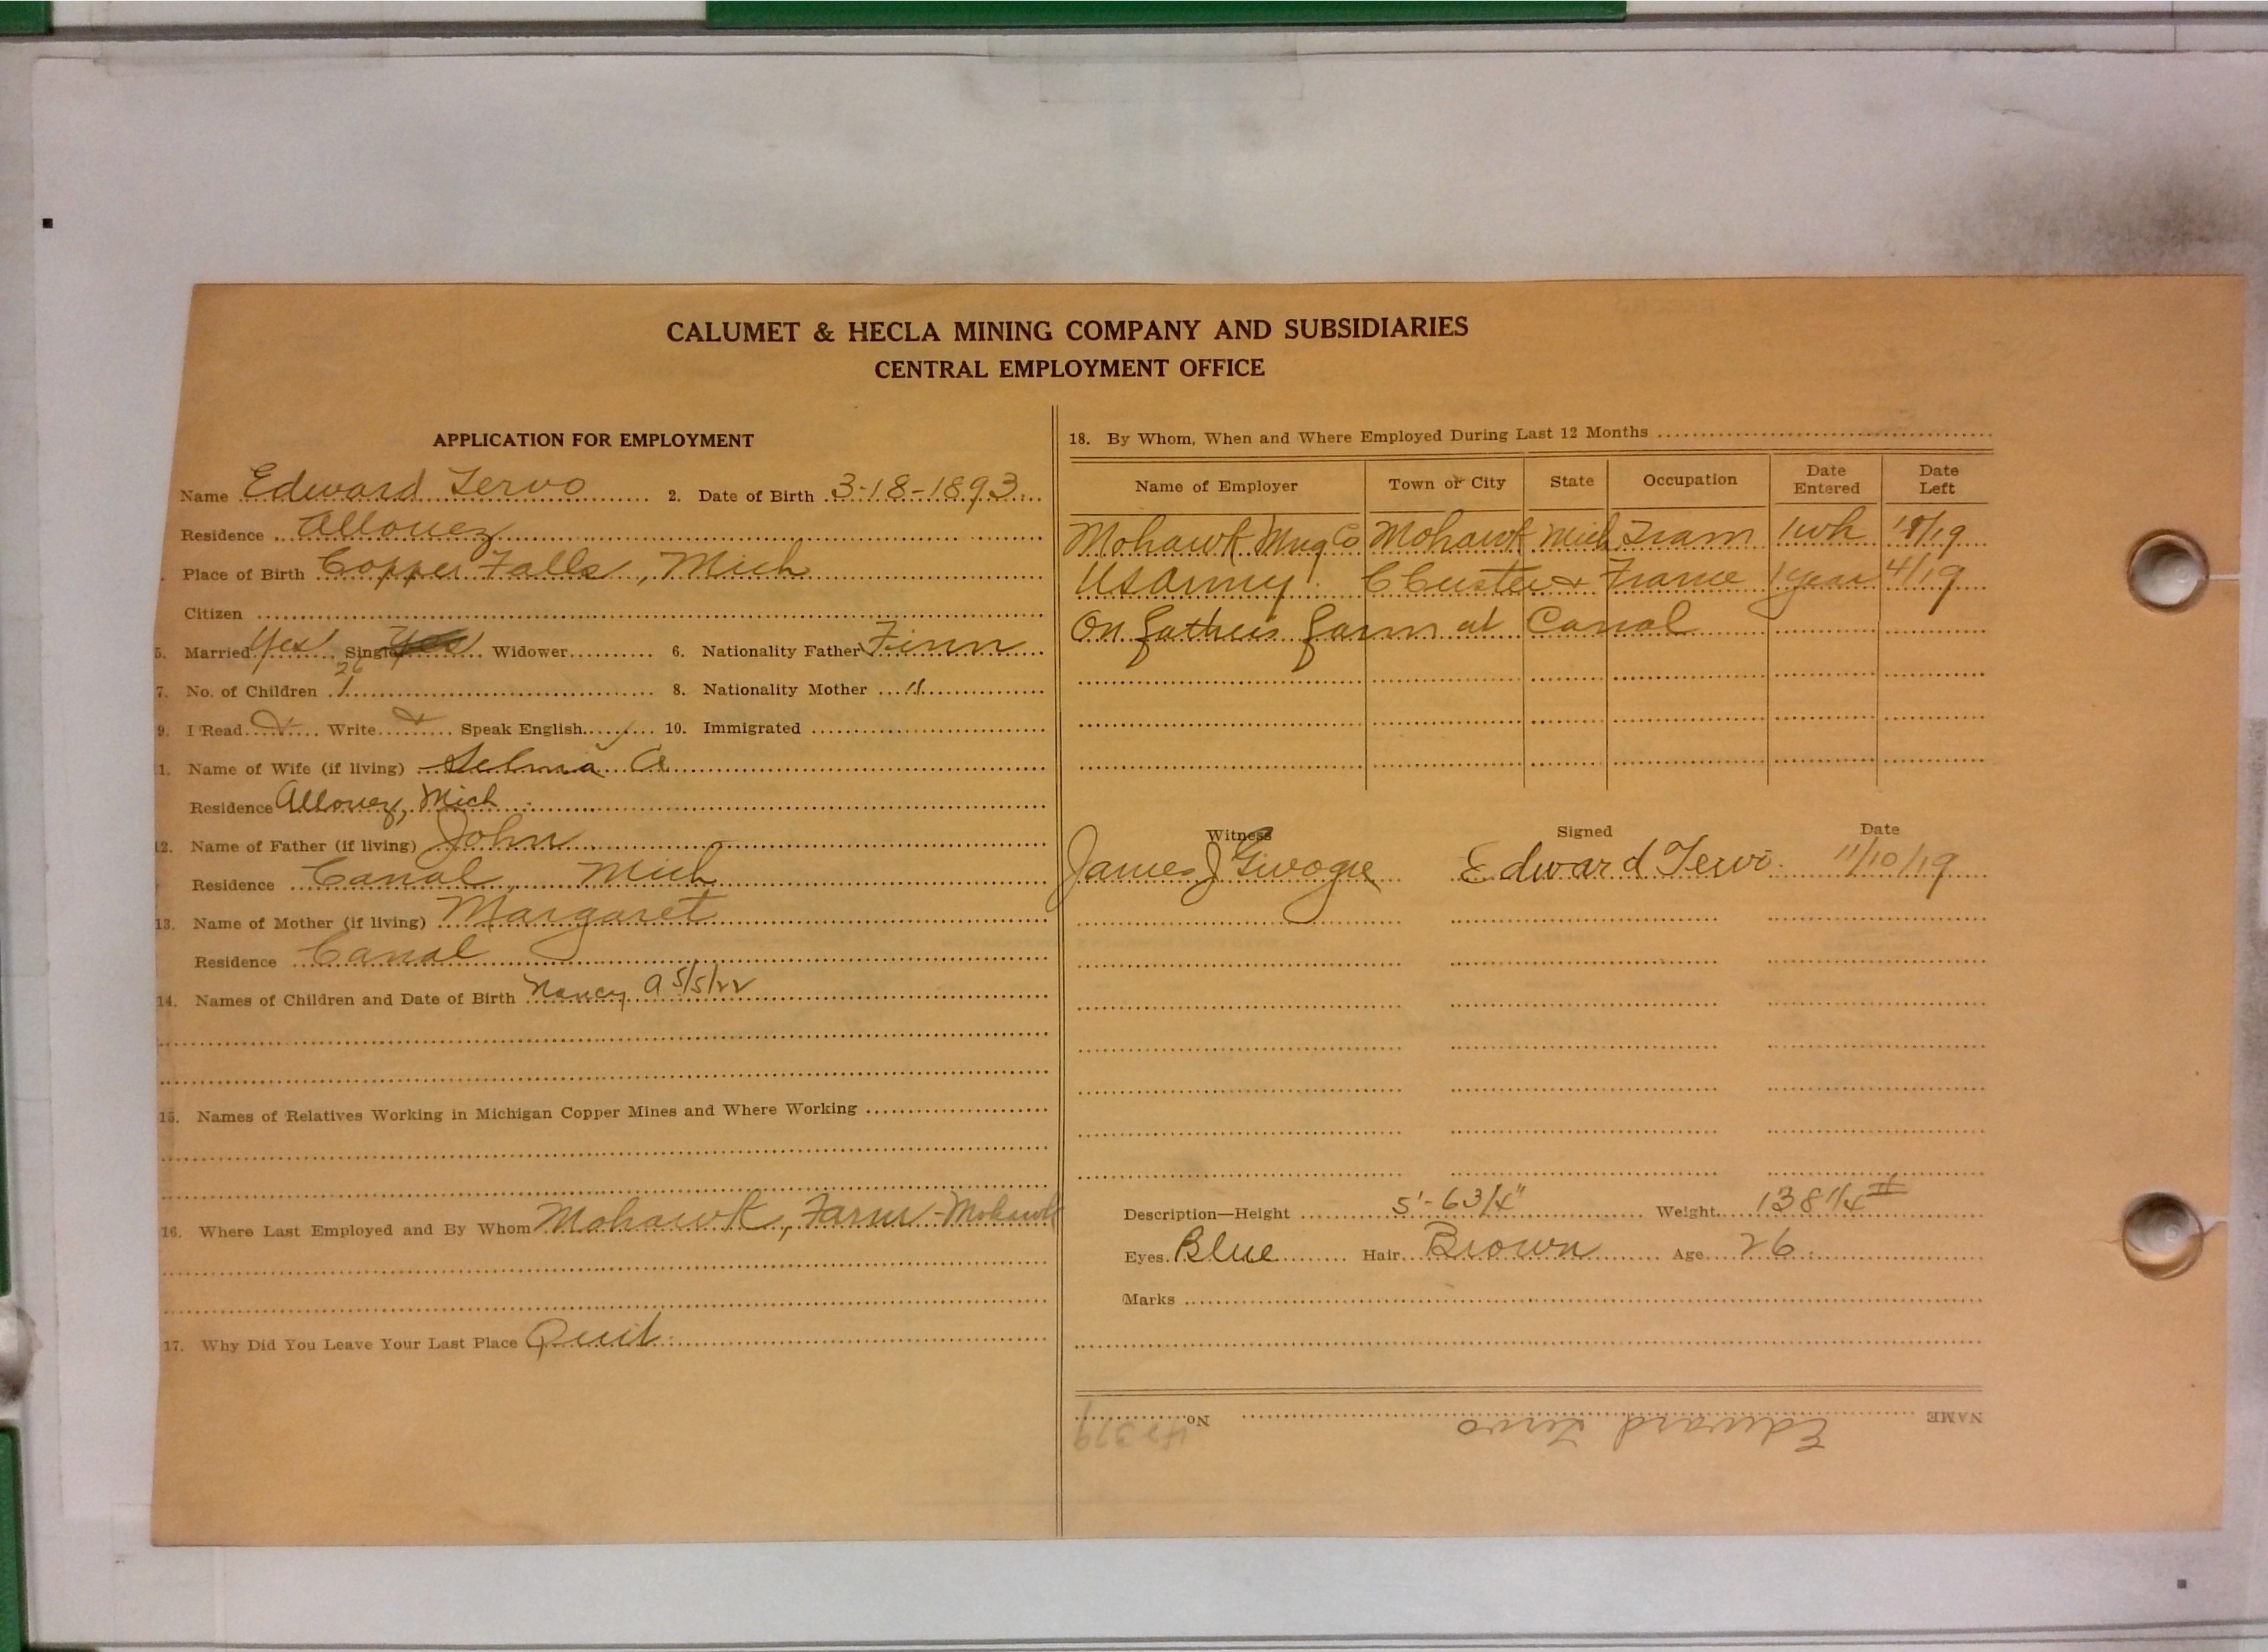 CALUMET & HECLA MINING COMPANY AND SUBSIDIARIES
CENTRAL EMPLOYMENT OFFICE
APPLICATION FOR EMPLOYMENT
Name Edward Tervo 2. Date of Birth 3-18-1893
Residence Allouez
Place of Birth Copper Falls, Mich
Citizen
5. Married Yes Single Yes Widower 6. Nationality Father Finn
26
7. No. of Children 1 8. Nationality Mother "
9. I Read Write Speak English 10. Immigrated
1. Name of Wife (if living) Selma A
Residence Allouez, Mich
12. Name of Father (if living) John
Residence Canal, Mich
13. Name of Mother (if living) Margaret
Residence Canal
14. Names of Children and Date of Birth Nancy A 5/5/22
15. Names of Relatives Working in Michigan Copper Mines and Where Working
16. Where Last Employed and By Whom Mohawk, Farm - Mohawk
17. Why Did You Leave Your Last Place Quit
18. By Whom, When and Where Employed During Last 12 Months
Name of Employer Town or City State Occupation Date Entered Date Left
Mohawk Mng Co Mohawk Mich Tram 1 wk
US Army C Custer + France 1 year 4/19
On fathers farm at Canal
Witness Signed Date
James J Edward Tervo. 11/10/19
Description—Height 5'-6 3/4" Weight 138 1/4 #
Eyes Blue Hair Brown Age 26
Marks
NAME Edward Tervo No.